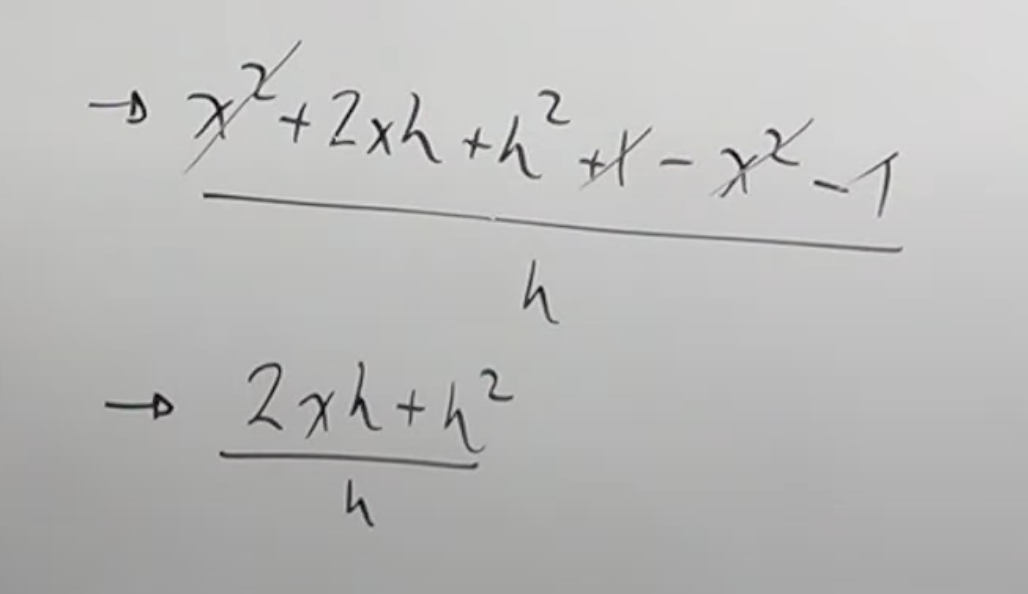 → x² + 2xh + h² + 1 - x² - 1
h
→ 2xh + h²
h